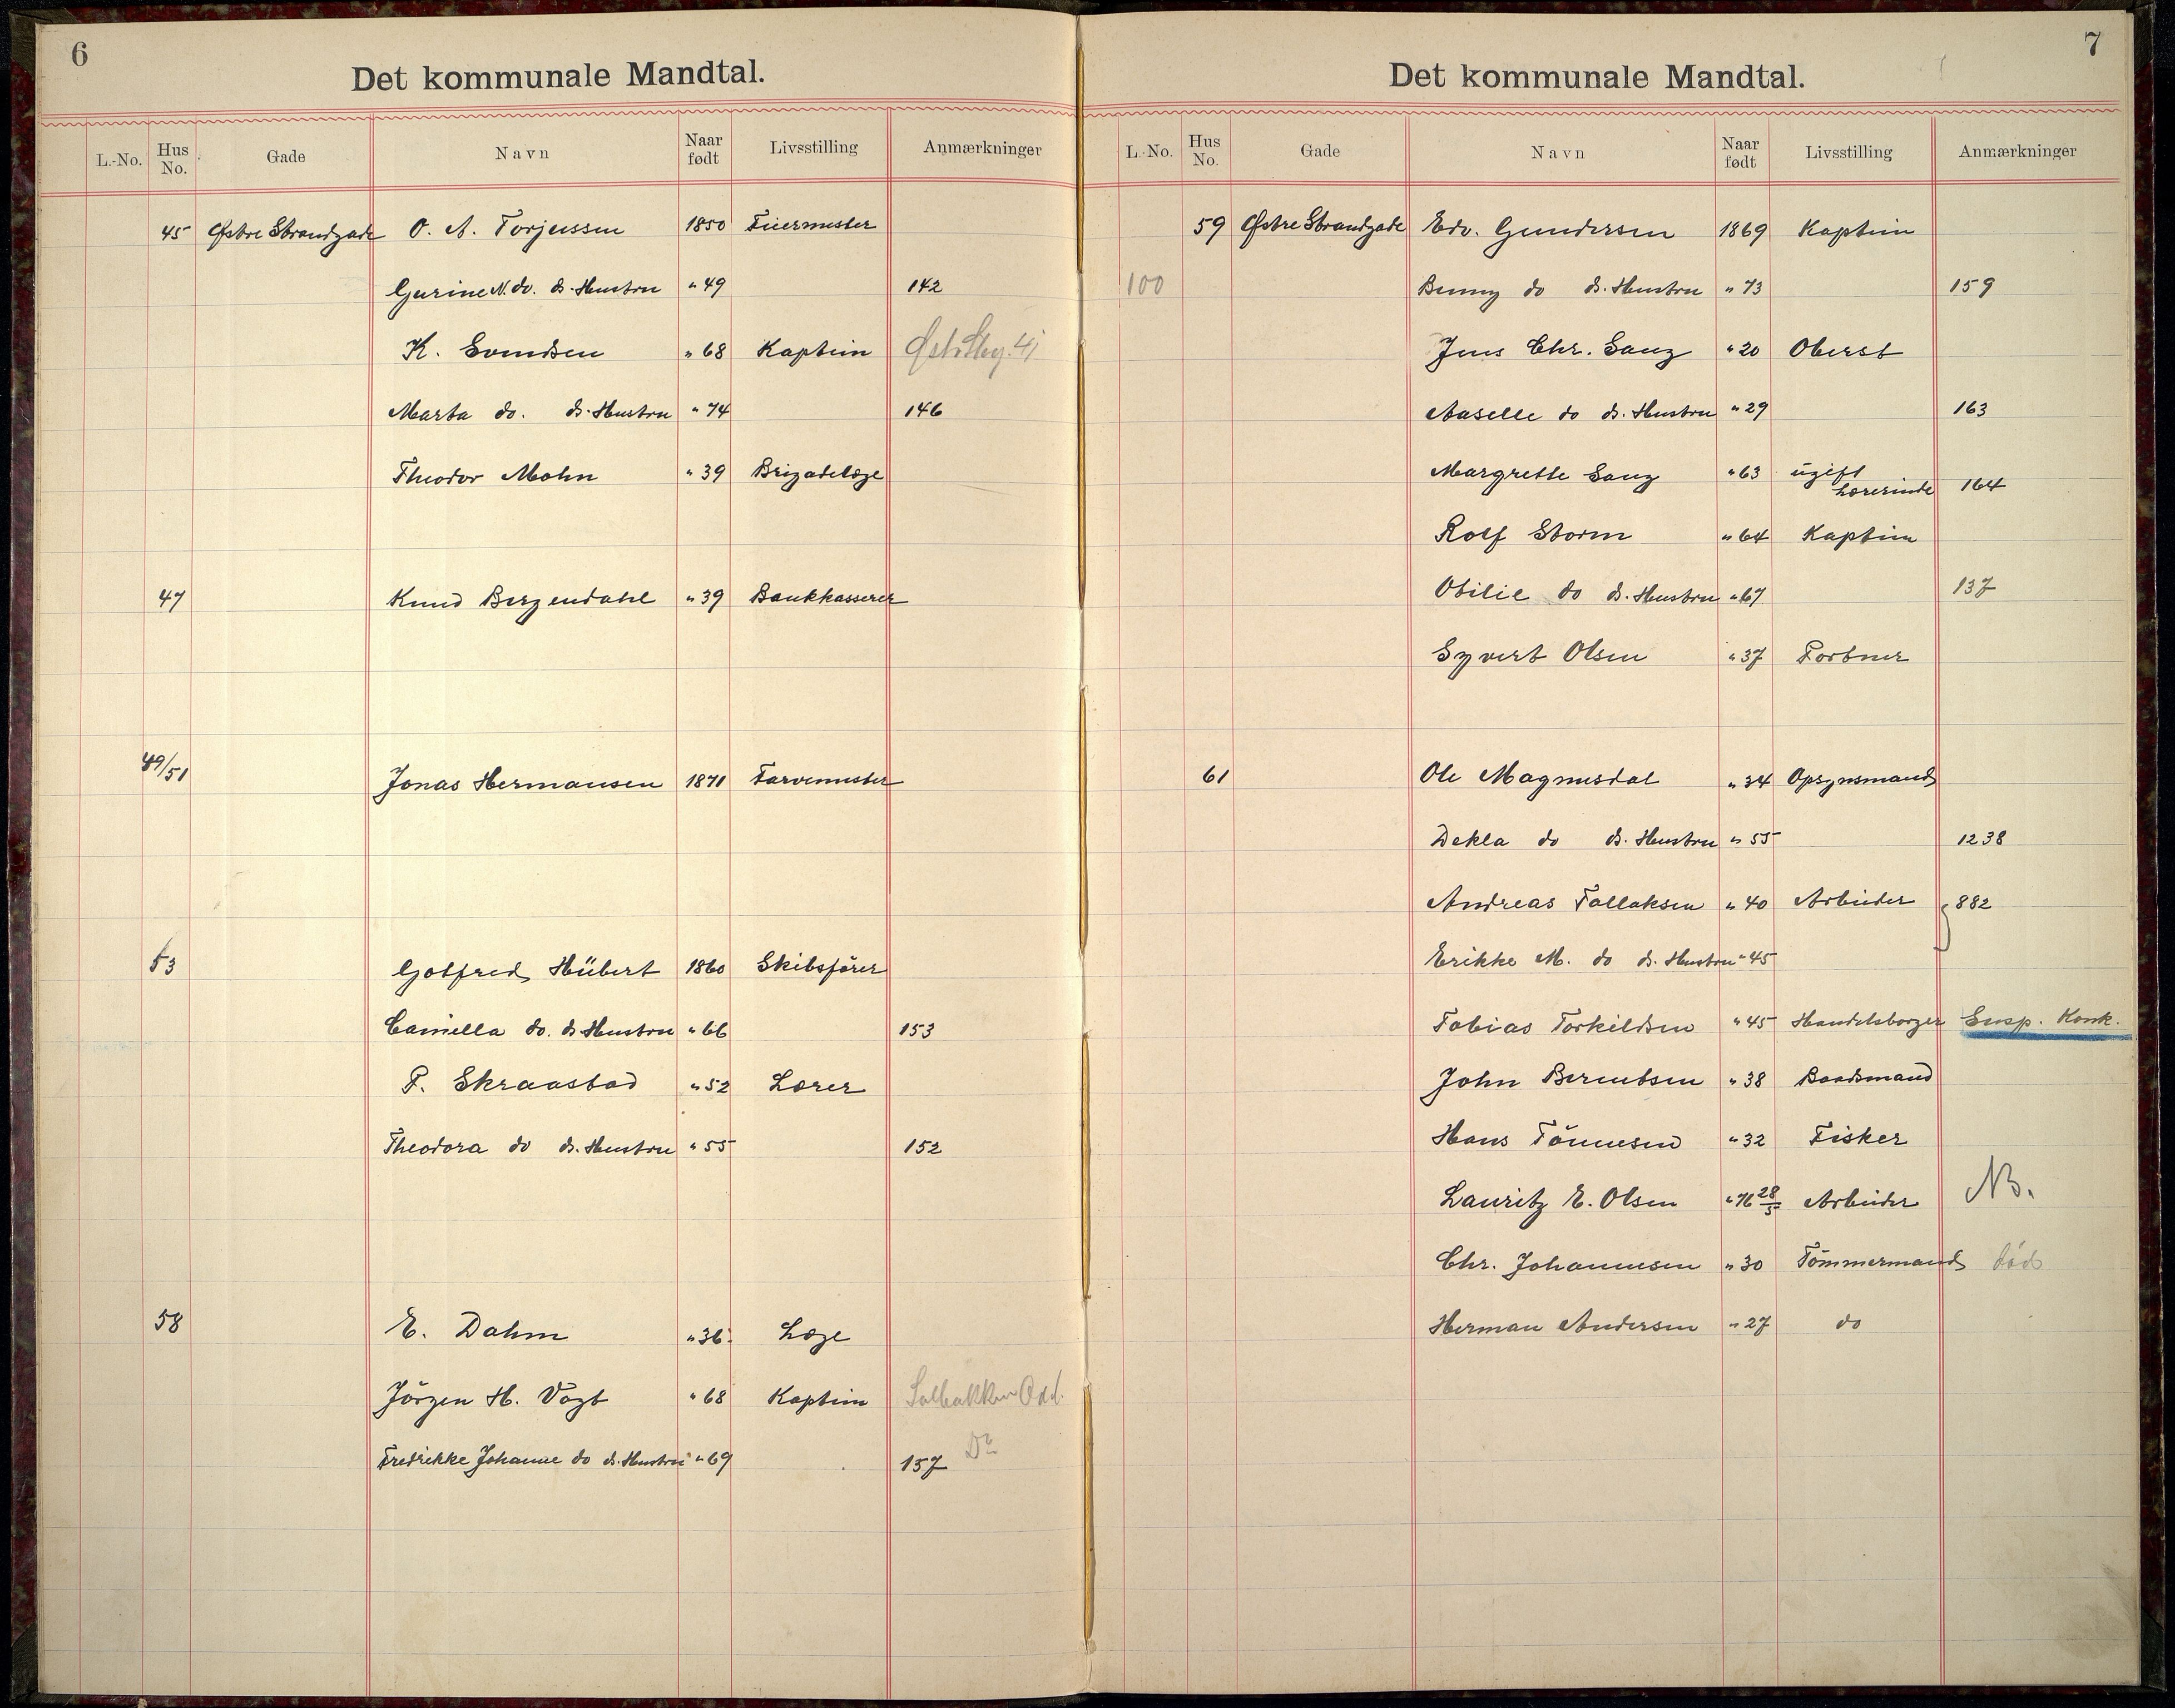 6
Det kommunale Mandtal.
L.-No. Hus No. Gade Navn Naar født Livsstilling Anmærkninger
45 Østre Strandgade O. A. Torjussen 1850 Feiermester
Gurine N. do. ds. Hustru " 49 142
K. Svendsen " 68 Kaptein
Marta do. ds. Hustru " 74 146
Theodor Mohn " 39 Brigadelæge
47 Knud Bergendahl " 39 Bankkasserer
49/51 Jonas Hermansen 1871 Farvemester
53 Gotfred Hübert 1860 Skibsfører
Camella do. ds. Hustru " 66 153
F. Skraastad " 52 Lærer
Theodora do ds. Hustru " 55 152
58 E. Dahm " 36 Læge
Jörgen H. Vogt " 68 Kaptein Solbakken Odd.
Fredrikke Johanne do ds. Hustru " 69 157 Do
7
Det kommunale Mandtal.
L.-No. Hus No. Gade Navn Naar født Livsstilling Anmærkninger
59 Østre Strandgade Edv. Gundersen 1869 Kaptein
100 Benny do ds. Hustru " 73 159
Jens Chr. Sang " 20 Oberst
Aaselle do ds. Hustru " 29 163
Margrethe Sang " 63 ugift
Lærerinde 164
Rolf Storm " 64 Kaptein
Otilie do ds. Hustru " 67 137
Syvert Olsen " 37 Portner
61 Ole Magnusdal " 34 Opsynsmand
Dekla do ds. Hustru " 55 1238
Andreas Tallaksen " 40 Arbeider 882
Erikke M. do ds. Hustru " 45
Tobias Torkildsen " 45 Handelsborger Susp. Konk.
John Berentsen " 38 Baadsmand
Hans Tönnesen " 32 Fisker
Lauritz E. Olsen " 76 28/5 Arbeider NB.
Chr. Johannesen " 30 Tömmermand död
Herman Andersen " 27 do